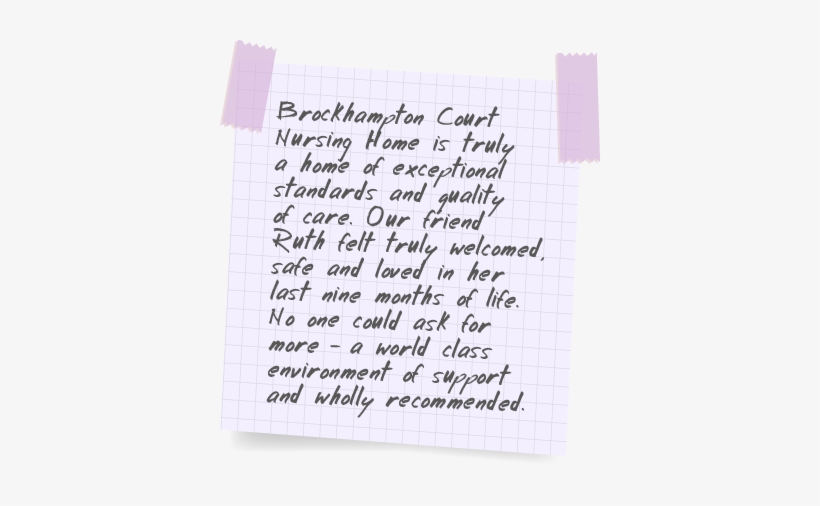 Brockhampton Court
Nursing Home is truly
a home of exceptional
standards and quality
of care. Our friend
Ruth felt truly welcomed,
safe and loved in her
last nine months of life.
No one could ask for
more - a world class
environment of support
and wholly recommended.